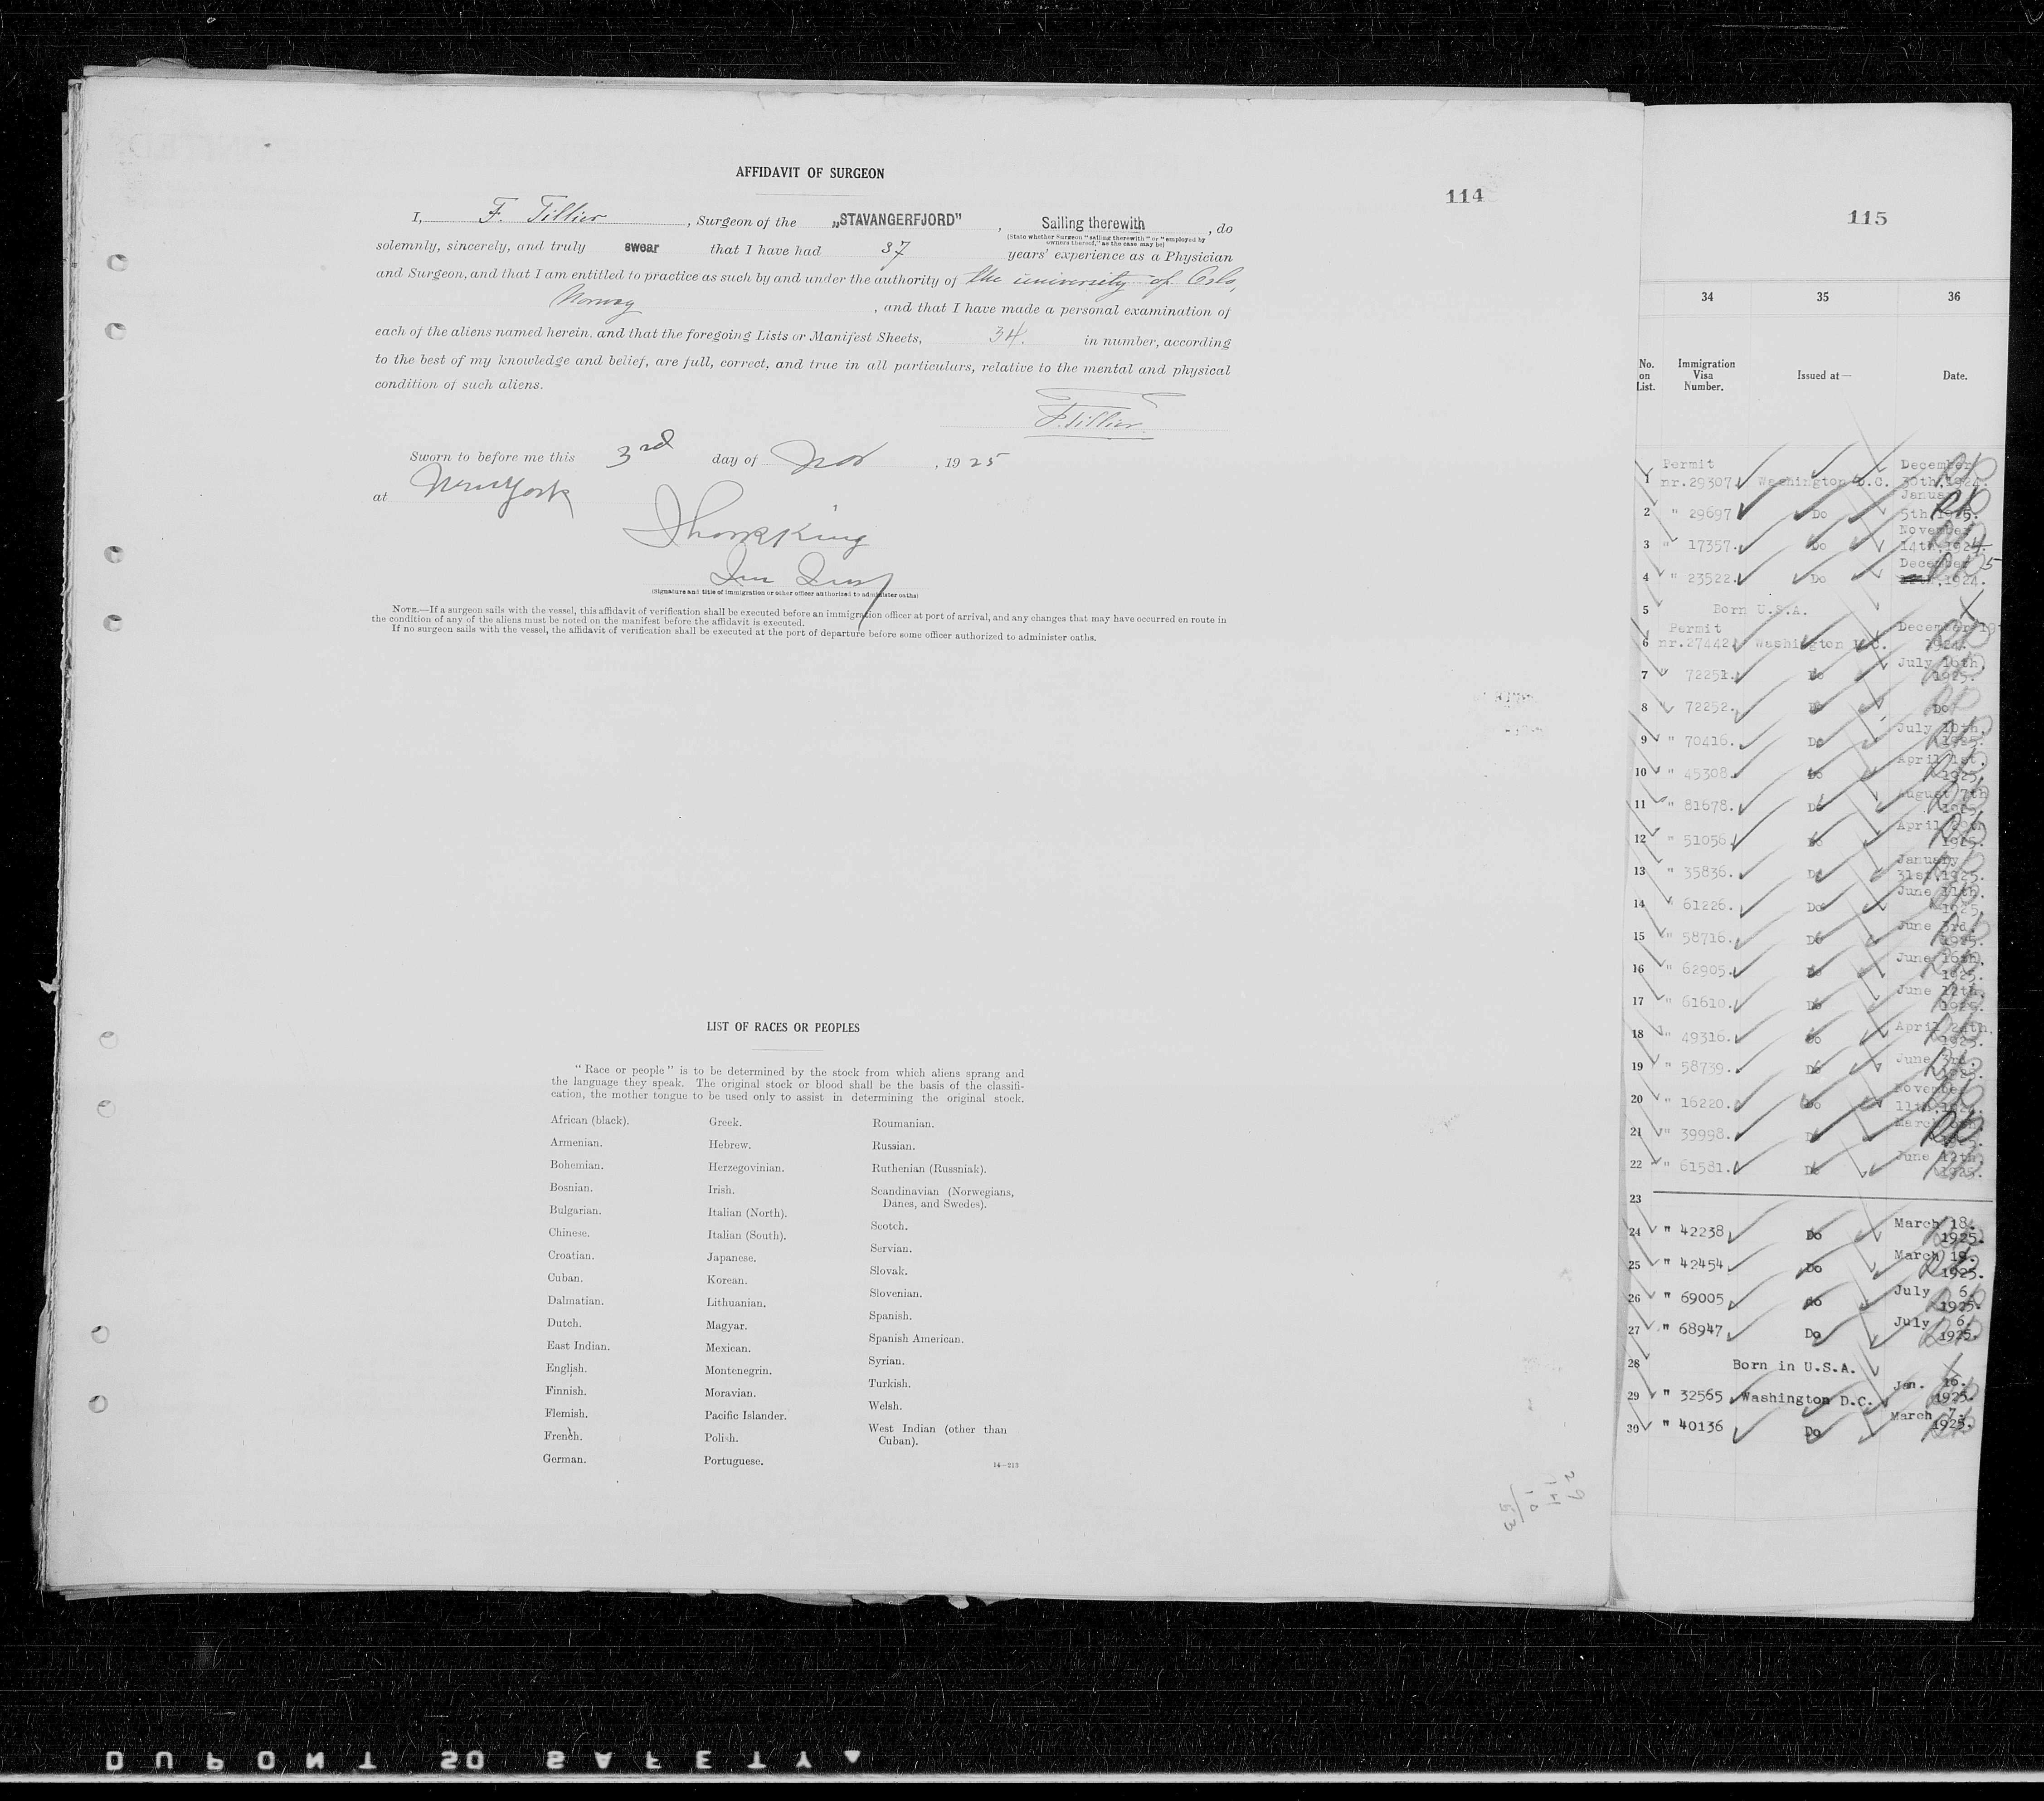 AFFIDAVIT OF SURGEON
114
I, F. Tillier, Surgeon of the „STAVANGERFJORD”, Sailing therewith, do
(State whether Surgeon "sailing therewith" or "employed by
owners thereof," as the case may be)
solemnly, sincerely, and truly swear that I have had 37 years' experience as a Physician
and Surgeon, and that I am entitled to practice as such by and under the authority of the university of Oslo,
Norway, and that I have made a personal examination of
each of the aliens named herein, and that the foregoing Lists or Manifest Sheets, 34. in number, according
to the best of my knowledge and belief, are full, correct, and true in all particulars, relative to the mental and physical
condition of such aliens.
F. Tillier.
Sworn to before me this 3rd day of Nov, 1925
at New York
(Signature and title of immigration or other officer authorized to administer oaths)
NOTE.—If a surgeon sails with the vessel, this affidavit of verification shall be executed before an immigration officer at port of arrival, and any changes that may have occurred en route in
the condition of any of the aliens must be noted on the manifest before the affidavit is executed.
If no surgeon sails with the vessel, the affidavit of verification shall be executed at the port of departure before some officer authorized to administer oaths.
LIST OF RACES OR PEOPLES
"Race or people" is to be determined by the stock from which aliens sprang and
the language they speak. The original stock or blood shall be the basis of the classifi-
cation, the mother tongue to be used only to assist in determining the original stock.
African (black).
Armenian.
Bohemian.
Bosnian.
Bulgarian.
Chinese.
Croatian.
Cuban.
Dalmatian.
Dutch.
East Indian.
English.
Finnish.
Flemish.
French.
German.
Greek.
Hebrew.
Herzegovinian.
Irish.
Italian (North).
Italian (South).
Japanese.
Korean.
Lithuanian.
Magyar.
Mexican.
Montenegrin.
Moravian.
Pacific Islander.
Polish.
Portuguese.
Roumanian.
Russian.
Ruthenian (Russniak).
Scandinavian (Norwegians,
Danes, and Swedes).
Scotch.
Servian.
Slovak.
Slovenian.
Spanish.
Spanish American.
Syrian.
Turkish.
Welsh.
West Indian (other than
Cuban).
14—213
115
34 35 36
No. on List. Immigration Visa Number. Issued at— Date.
Permit December
1 nr.29307. Washington D.C. 30th,1924.
January
2 " 29697 Do 5th,1925.
November
3 " 17357. Do 14th,1924.
December
4 " 23522. Do 1924.
5 Born U.S.A.
Permit December 19
6 nr.27442. Washington D.C. 1924.
July 16th,
7 " 72251. Do 1925.
8 " 72252. Do Do
July 10th,
9 " 70416. Do 1925.
April 1st,
10 " 45308. Do 1925.
August 7th
11 " 81678. Do 1925.
April 30th
12 " 51056. Do 1925.
January
13 " 35836. Do 31st,1925.
June 11th.
14 " 61226. Do 1925.
June 3rd.
15 " 58716. Do 1925.
June 16th,
16 " 62905. Do 1925.
June 12th,
17 " 61610. Do 1925.
April 24th,
18 " 49316. Do 1925.
June 3rd.
19 " 58739. Do 1925.
November
20 " 16220. Do 11th,
March
21 " 39998. Do 1925.
June 12th,
22 " 61581. Do 1925.
23
March 18.
24 " 42238 Do 1925.
March 19.
25 " 42454 Do 1925.
July 6.
26 " 69005 do 1925.
July 6.
27 " 68947 Do 1925.
28 Born in U.S.A.
Jan. 16.
29 " 32565 Washington D.C. 1925.
March 7.
30 " 40136 Do 1925.
29
14
10
53
DUPONT SO SAFETY